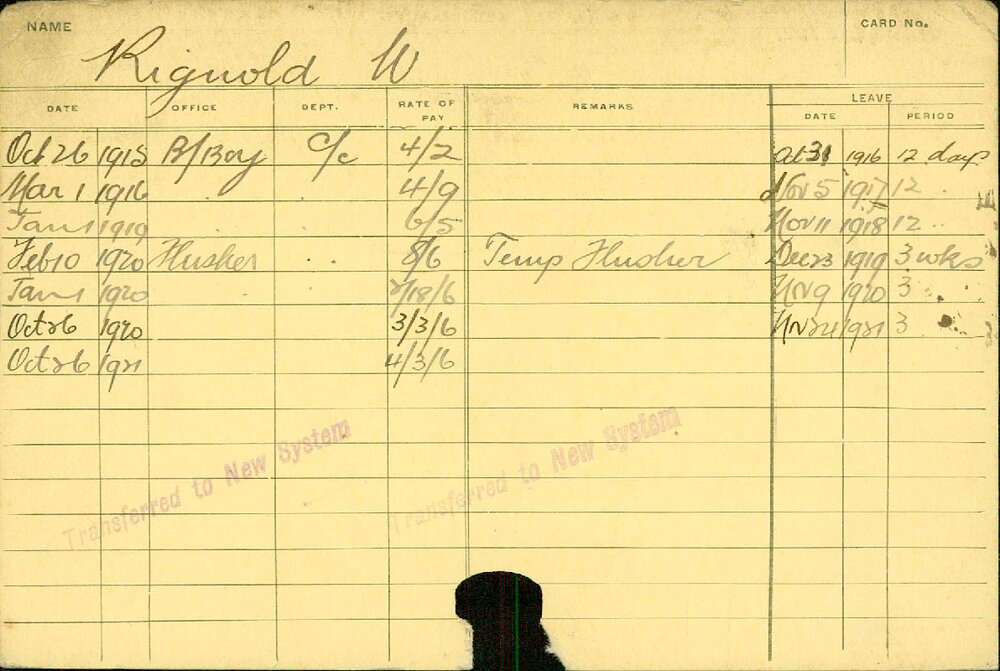 NAME
CARD No.
Rignold W
DATE OFFICE DEPT. RATE OF PAY REMARKS LEAVE
DATE PERIOD
Oct 26 1915 B/Boy C/c 4/2 Oct 31 1916 12 days
Mar 1 1916 4/9 Nov 5 1917 12 "
Jan 1 1919 6/5 Nov 11 1918 12 "
Feb 10 1920 Husker " 8/6 Temp Husher Dec 23 1919 3 wks
Jan 1 1920 " " /18/6 Nov 9 1920 3
Oct 26 1920 3/3/6 Nov 21 1921 3 "
Oct 26 1921 4/3/6
Transferred to New System
Transferred to New System